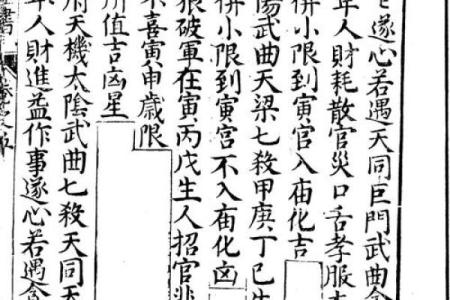 遂心若遇天同巨門武曲
年人財耗散官災口舌孝服
併小限到寅宮入庙化吉
陽武曲天梁七殺甲庚丁己生
併小限到寅宮不入庙化凶
狼破軍在寅丙戊生人招官非
不喜寅申歲限
所值吉凶星
府天機太陰武曲七殺天同天
年人財進益作事遂心若遇貪
書